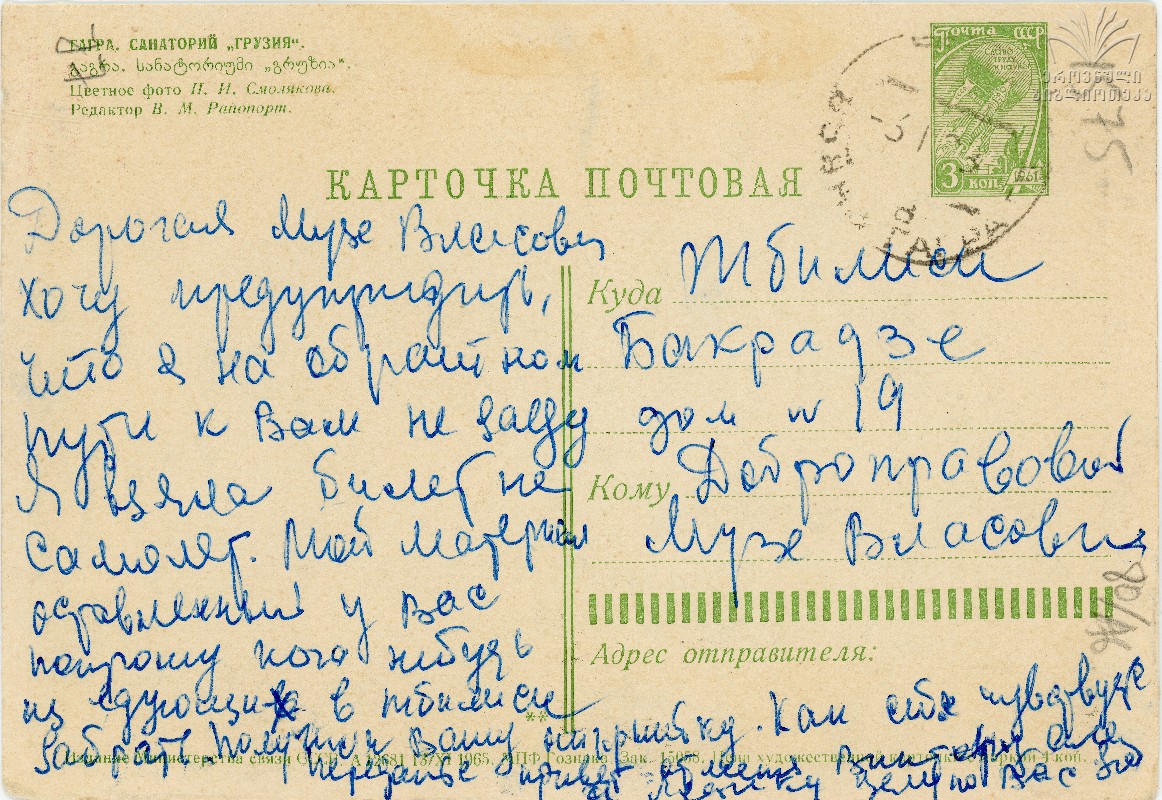 ГАГРА. САНАТОРИЙ „ГРУЗИЯ“.
გაგრა. სანატორიუმი „გრუზია“.
Цветное фото П. И. Смолякова.
Редактор В. М. Рапопорт.
Почта СССР
3 коп
1961
ეროვნული
ბიბლიოთეკა
КАРТОЧКА ПОЧТОВАЯ
Дорогая Музе Власовна
Хочу предупридить,
что я на обратном
пути к Вам не заеду
Я взяла билет на
самолет. Мой материал
оставленный у Вас
попрошу кого нибудь
из едующих в Тбилиси
забрать. Получили Вашу открытку. Как себя чувствуете
передайте привет
целую Вас
Куда Тбилиси
Бакрадзе
дом № 19
Кому Доброправовой
Музе Власовне
Адрес отправителя:
Издание Министерства связи СССР. А 12681 13/XI 1965. МПФ Гознака. Зак. 15058. Цена художественной карточки с маркой 4 коп.